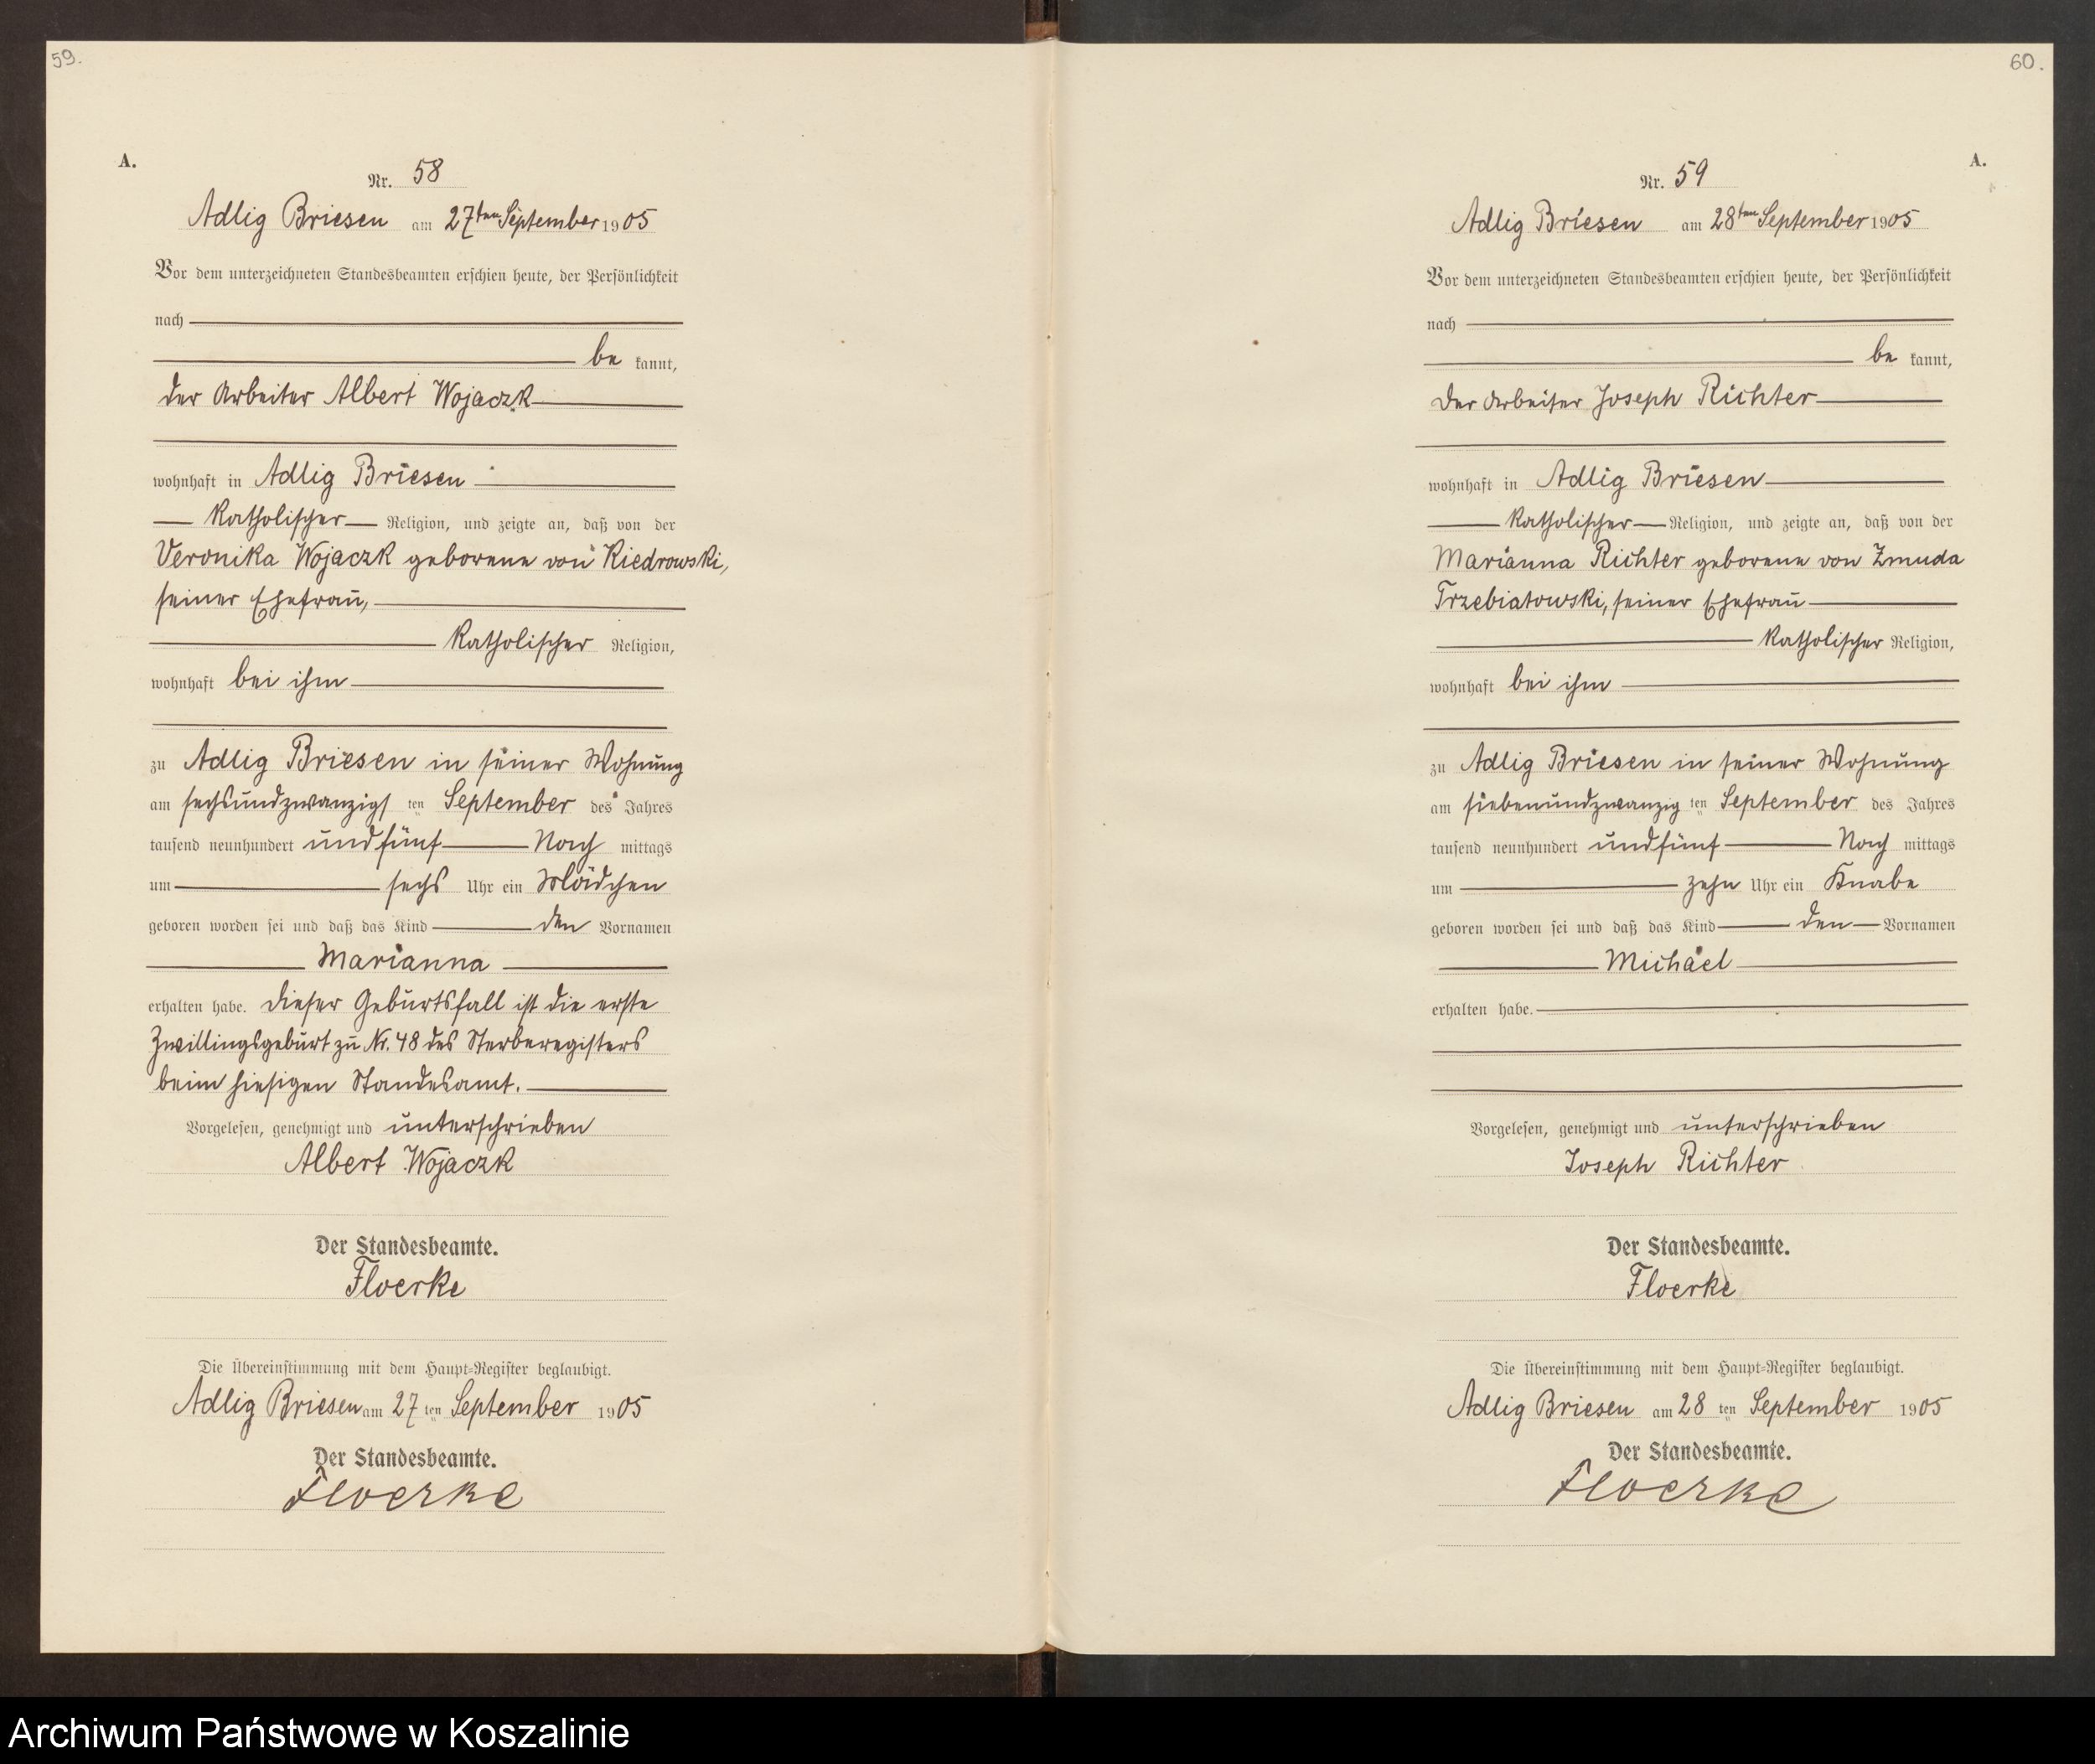 59.
A.
Nr. 58
Adlig Briesen am 27ten September 1905
Vor dem unterzeichneten Standesbeamten erschien heute, der Persönlichkeit
nach
be kannt,
der Arbeiter Albert Wojaczk
wohnhaft in Adlig Briesen
Katholischer Religion, und zeigte an, daß von der
Veronika Wojaczk geborene von Kiedrowski,
seiner Ehefrau,
Katholischer Religion,
wohnhaft bei ihm
zu Adlig Briesen in seiner Wohnung
am sechsundzwanzigs ten September des Jahres
tausend neunhundert undfünf Nach mittags
um sechs Uhr ein Mädchen
geboren worden sei und daß das Kind den Vornamen
Marianna
erhalten habe. Dieser Geburtsfall ist die erste
Zwillingsgeburt zu Nr. 48 des Sterberegisters
beim hiesigen Standesamt.
Vorgelesen, genehmigt und unterschrieben
Albert Wojaczk
Der Standesbeamte.
Floerke
Die Übereinstimmung mit dem Haupt-Register beglaubigt.
Adlig Briesen am 27 ten September 1905
Der Standesbeamte.
Floerke
60.
A.
Nr. 59
Adlig Briesen am 28ten September 1905
Vor dem unterzeichneten Standesbeamten erschien heute, der Persönlichkeit
nach
be kannt,
der Arbeiter Joseph Richter
wohnhaft in Adlig Briesen
Katholischer Religion, und zeigte an, daß von der
Marianna Richter geborene von Zmuda
Trzebiatowski, seiner Ehefrau
Katholischer Religion,
wohnhaft bei ihm
zu Adlig Briesen in seiner Wohnung
am siebenundzwanzig ten September des Jahres
tausend neunhundert undfünf Nach mittags
um zehn Uhr ein Knabe
geboren worden sei und daß das Kind den Vornamen
Michael
erhalten habe.
Vorgelesen, genehmigt und unterschrieben
Joseph Richter
Der Standesbeamte.
Floerke
Die Übereinstimmung mit dem Haupt-Register beglaubigt.
Adlig Briesen am 28 ten September 1905
Der Standesbeamte.
Floerke
Archiwum Państwowe w Koszalinie